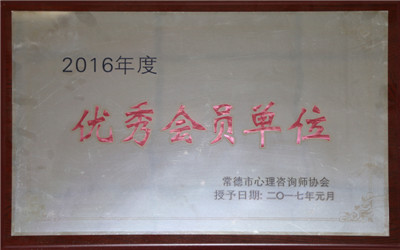 2016年度
优秀会员单位
常德市心理咨询师协会
授予日期:二〇一七年元月